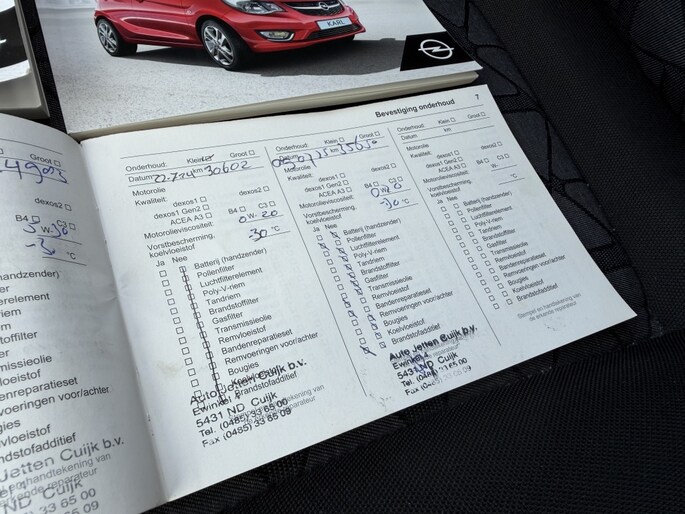 KARL
Bevestiging onderhoud 7
Groot
dexos2
B4 C3
5 W- 30
-3 °C
handzender)
stoffilter
smissieolie
vloeistof
enreparatieset
voeringen voor/achter
gies
elvloeistof
ndstofadditief
Jetten Cuijk b.v.
ND Cuijk
33 65 00
Onderhoud: Klein Groot
Datum 22.7.24 km 30602
Motorolie
Kwaliteit: dexos2
dexos1 Gen2
ACEA A3 B4 C3
Motorolieviscositeit: 0 W- 20
Vorstbescherming,
koelvloeistof -30 °C
Ja Nee
Batterij (handzender)
Pollenfilter
Luchtfilterelement
Poly-V-riem
Tandriem
Brandstoffilter
Gasfilter
Transmissieolie
Remvloeistof
Bandenreparatieset
Remvoeringen voor/achter
Bougies
Koelvloeistof
Brandstofadditief
Auto Jetten Cuijk b.v.
Ewinkel 4
5431 ND Cuijk
Tel. (0485) 33 65 00
Fax (0485) 33 65 09
Onderhoud: Klein Groot
Datum km 35650
Motorolie
Kwaliteit: dexos2
dexos1 Gen2
ACEA A3 B4 C3
Motorolieviscositeit: 0 W- 20
Vorstbescherming,
koelvloeistof -30 °C
Ja Nee
Batterij (handzender)
Pollenfilter
Luchtfilterelement
Poly-V-riem
Tandriem
Brandstoffilter
Gasfilter
Transmissieolie
Remvloeistof
Bandenreparatieset
Remvoeringen voor/achter
Bougies
Koelvloeistof
Brandstofadditief
Auto Jetten Cuijk b.v.
Ewinkel 4
5431 ND Cuijk
Tel. (0485) 33 65 00
Fax (0485) 33 65 09
Onderhoud: Klein Groot
Datum km
Motorolie
Kwaliteit: dexos2
dexos1 Gen2
ACEA A3 B4 C3
Motorolieviscositeit: W-
Vorstbescherming,
koelvloeistof °C
Ja Nee
Batterij (handzender)
Pollenfilter
Luchtfilterelement
Poly-V-riem
Tandriem
Brandstoffilter
Gasfilter
Transmissieolie
Remvloeistof
Bandenreparatieset
Remvoeringen voor/achter
Bougies
Koelvloeistof
Brandstofadditief
Stempel en handtekening van
de erkende reparateur